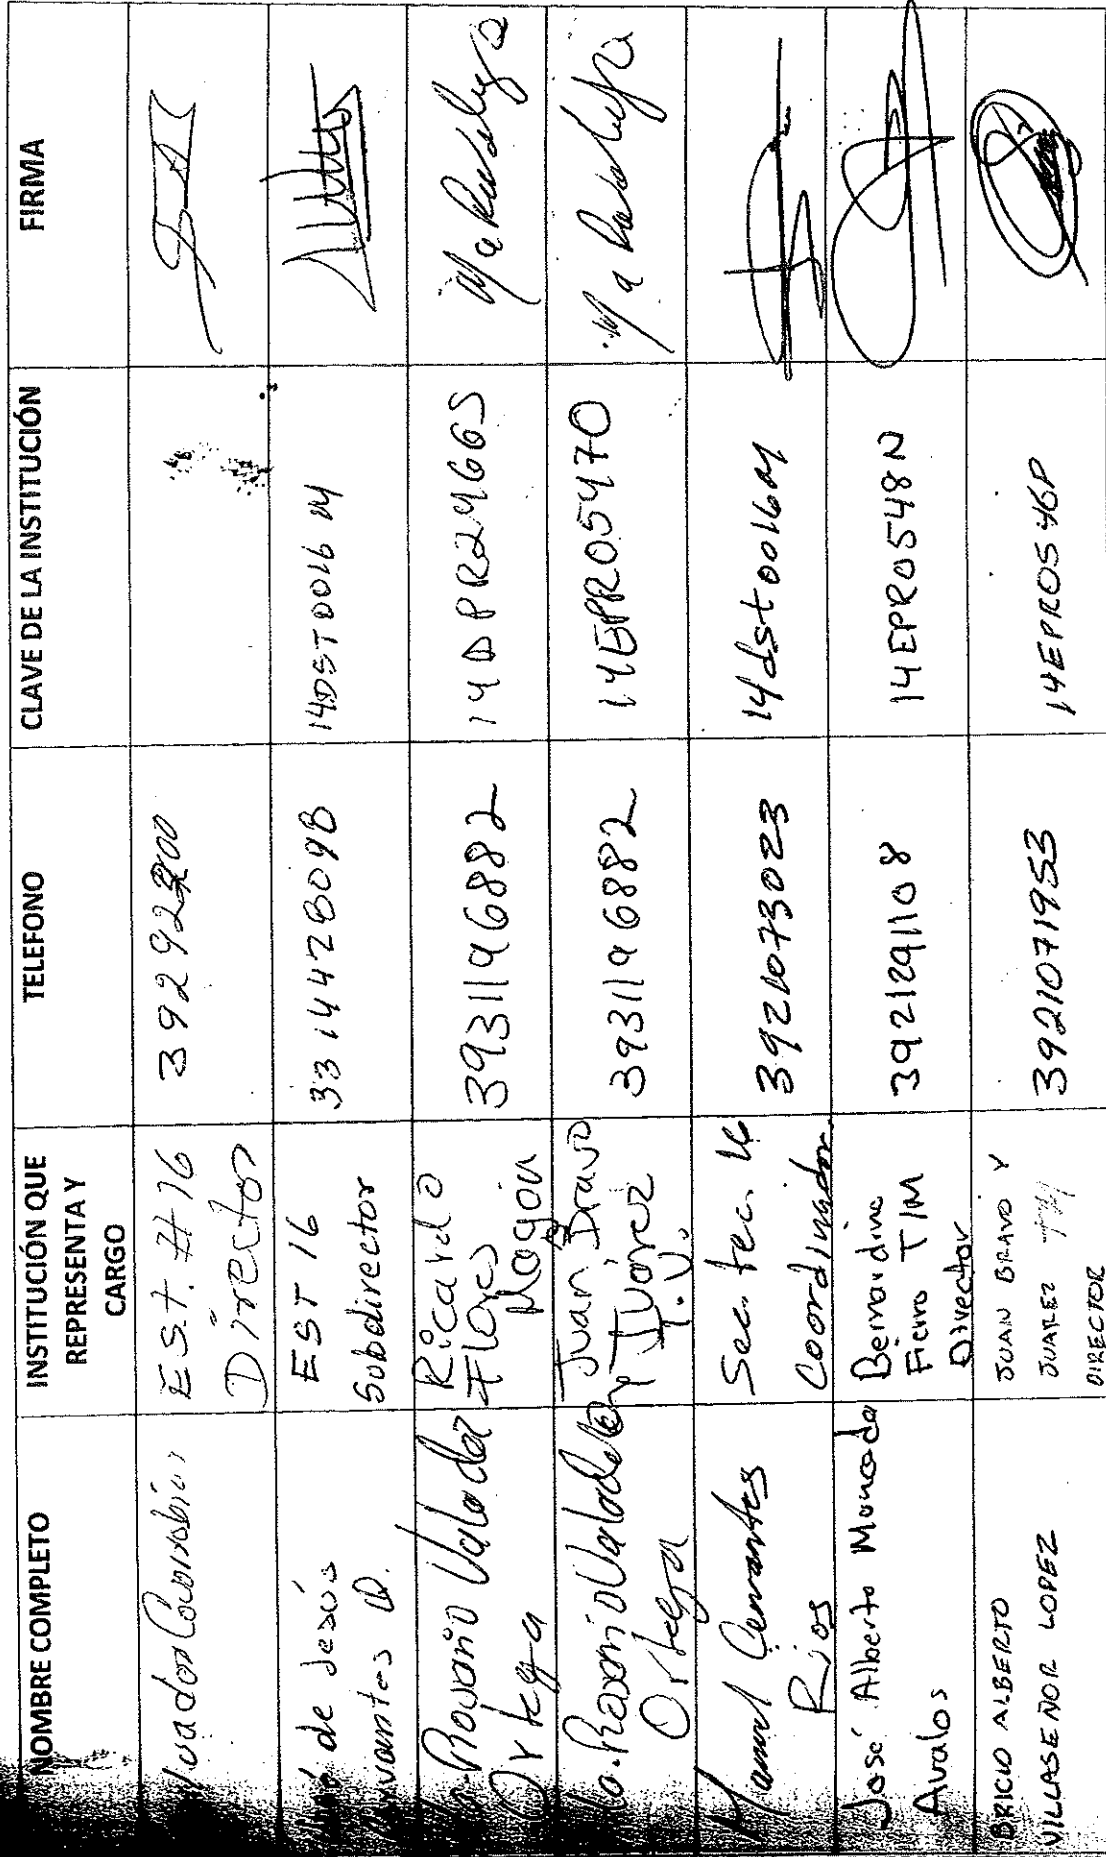 NOMBRE COMPLETO
INSTITUCIÓN QUE
REPRESENTA Y
CARGO
TELEFONO
CLAVE DE LA INSTITUCIÓN
FIRMA
Covarrubias
E.S.T. # 16
Director
39292
de Jesús
EST 16
Subdirector
3314428098
14DST0016M
Ma. Rosario Valadez
Ortega
Ricardo
Flores
Magón
3931196882
14DPR2466S
Ma. Rosario Valadez
Ortega
Juan Bravo
y Juárez
T.V.
3931196882
14EPR0547O
Manuel Cervantes
Rios
Sec. tec. 16
Coordinador
3921073023
14dst0016M
José Alberto Moncada
Avalos
Bernardino
Fierro T/M
Director
3921291108
14EPR0548N
BRICIO ALBERTO
VILLASEÑOR LOPEZ
JUAN BRAVO Y
JUAREZ T/M
DIRECTOR
3921071953
14EPR0546P